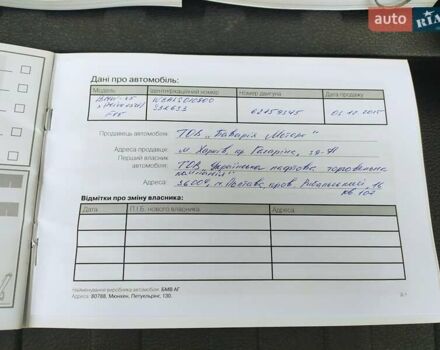 auto
RIA
Дані про автомобіль:
Модель Ідентифікаційний номер Номер двигуна Дата продажу
BMW
01.12.2015
Продавець автомобіля: ТОВ „Баварія Моторс"
Адреса продавця: м. Харків, пр. Гагаріна,
Перший власник
автомобіля: ТОВ „Українська нафтова торговельна
компанія"
Адреса: м. Полтава, пров. Рибальський 16
кв 102
Відмітки про зміну власника:
Дата П.І.Б. нового власника Адреса
Найменування виробника автомобіля: БМВ АГ
Адреса: 80788, Мюнхен, Петуельрінг, 130.